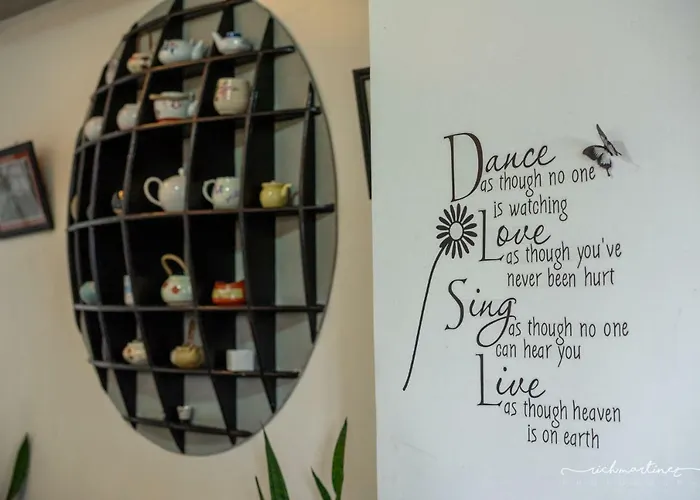 Dance
as though no one
is watching
Love
as though you've
never been hurt
Sing
as though no one
can hear you
Live
as though heaven
is on earth
richmartinez